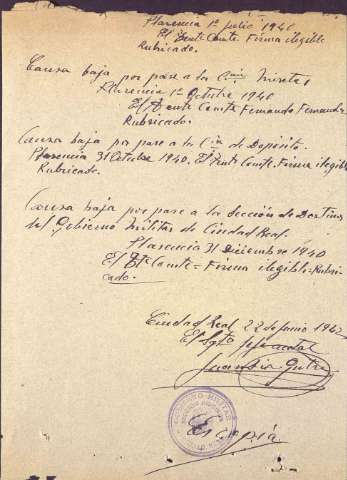 Plasencia 1º julio 1940
El Tente Comte. Firma ilegible
Rubricado.
Causa baja por pase a la Cia
Plasencia 1º Octubre 1940
El Tente Comte Fernando Fernandez
Rubricado.
Causa baja por pase a la Cia de Depósito.
Plasencia 31 Octubre 1940. El Tente Comte. Firma ilegible
Rubricado.
Causa baja por pase a la Sección de Destinos
del Gobierno Militar de Ciudad Real.
Plasencia 31 Diciembre 1940
El Tte Comte = Firma ilegible = Rubri-
cado.
Ciudad Real 22 de junio 1942
El Sgto
GOBIERNO MILITAR
Es copia